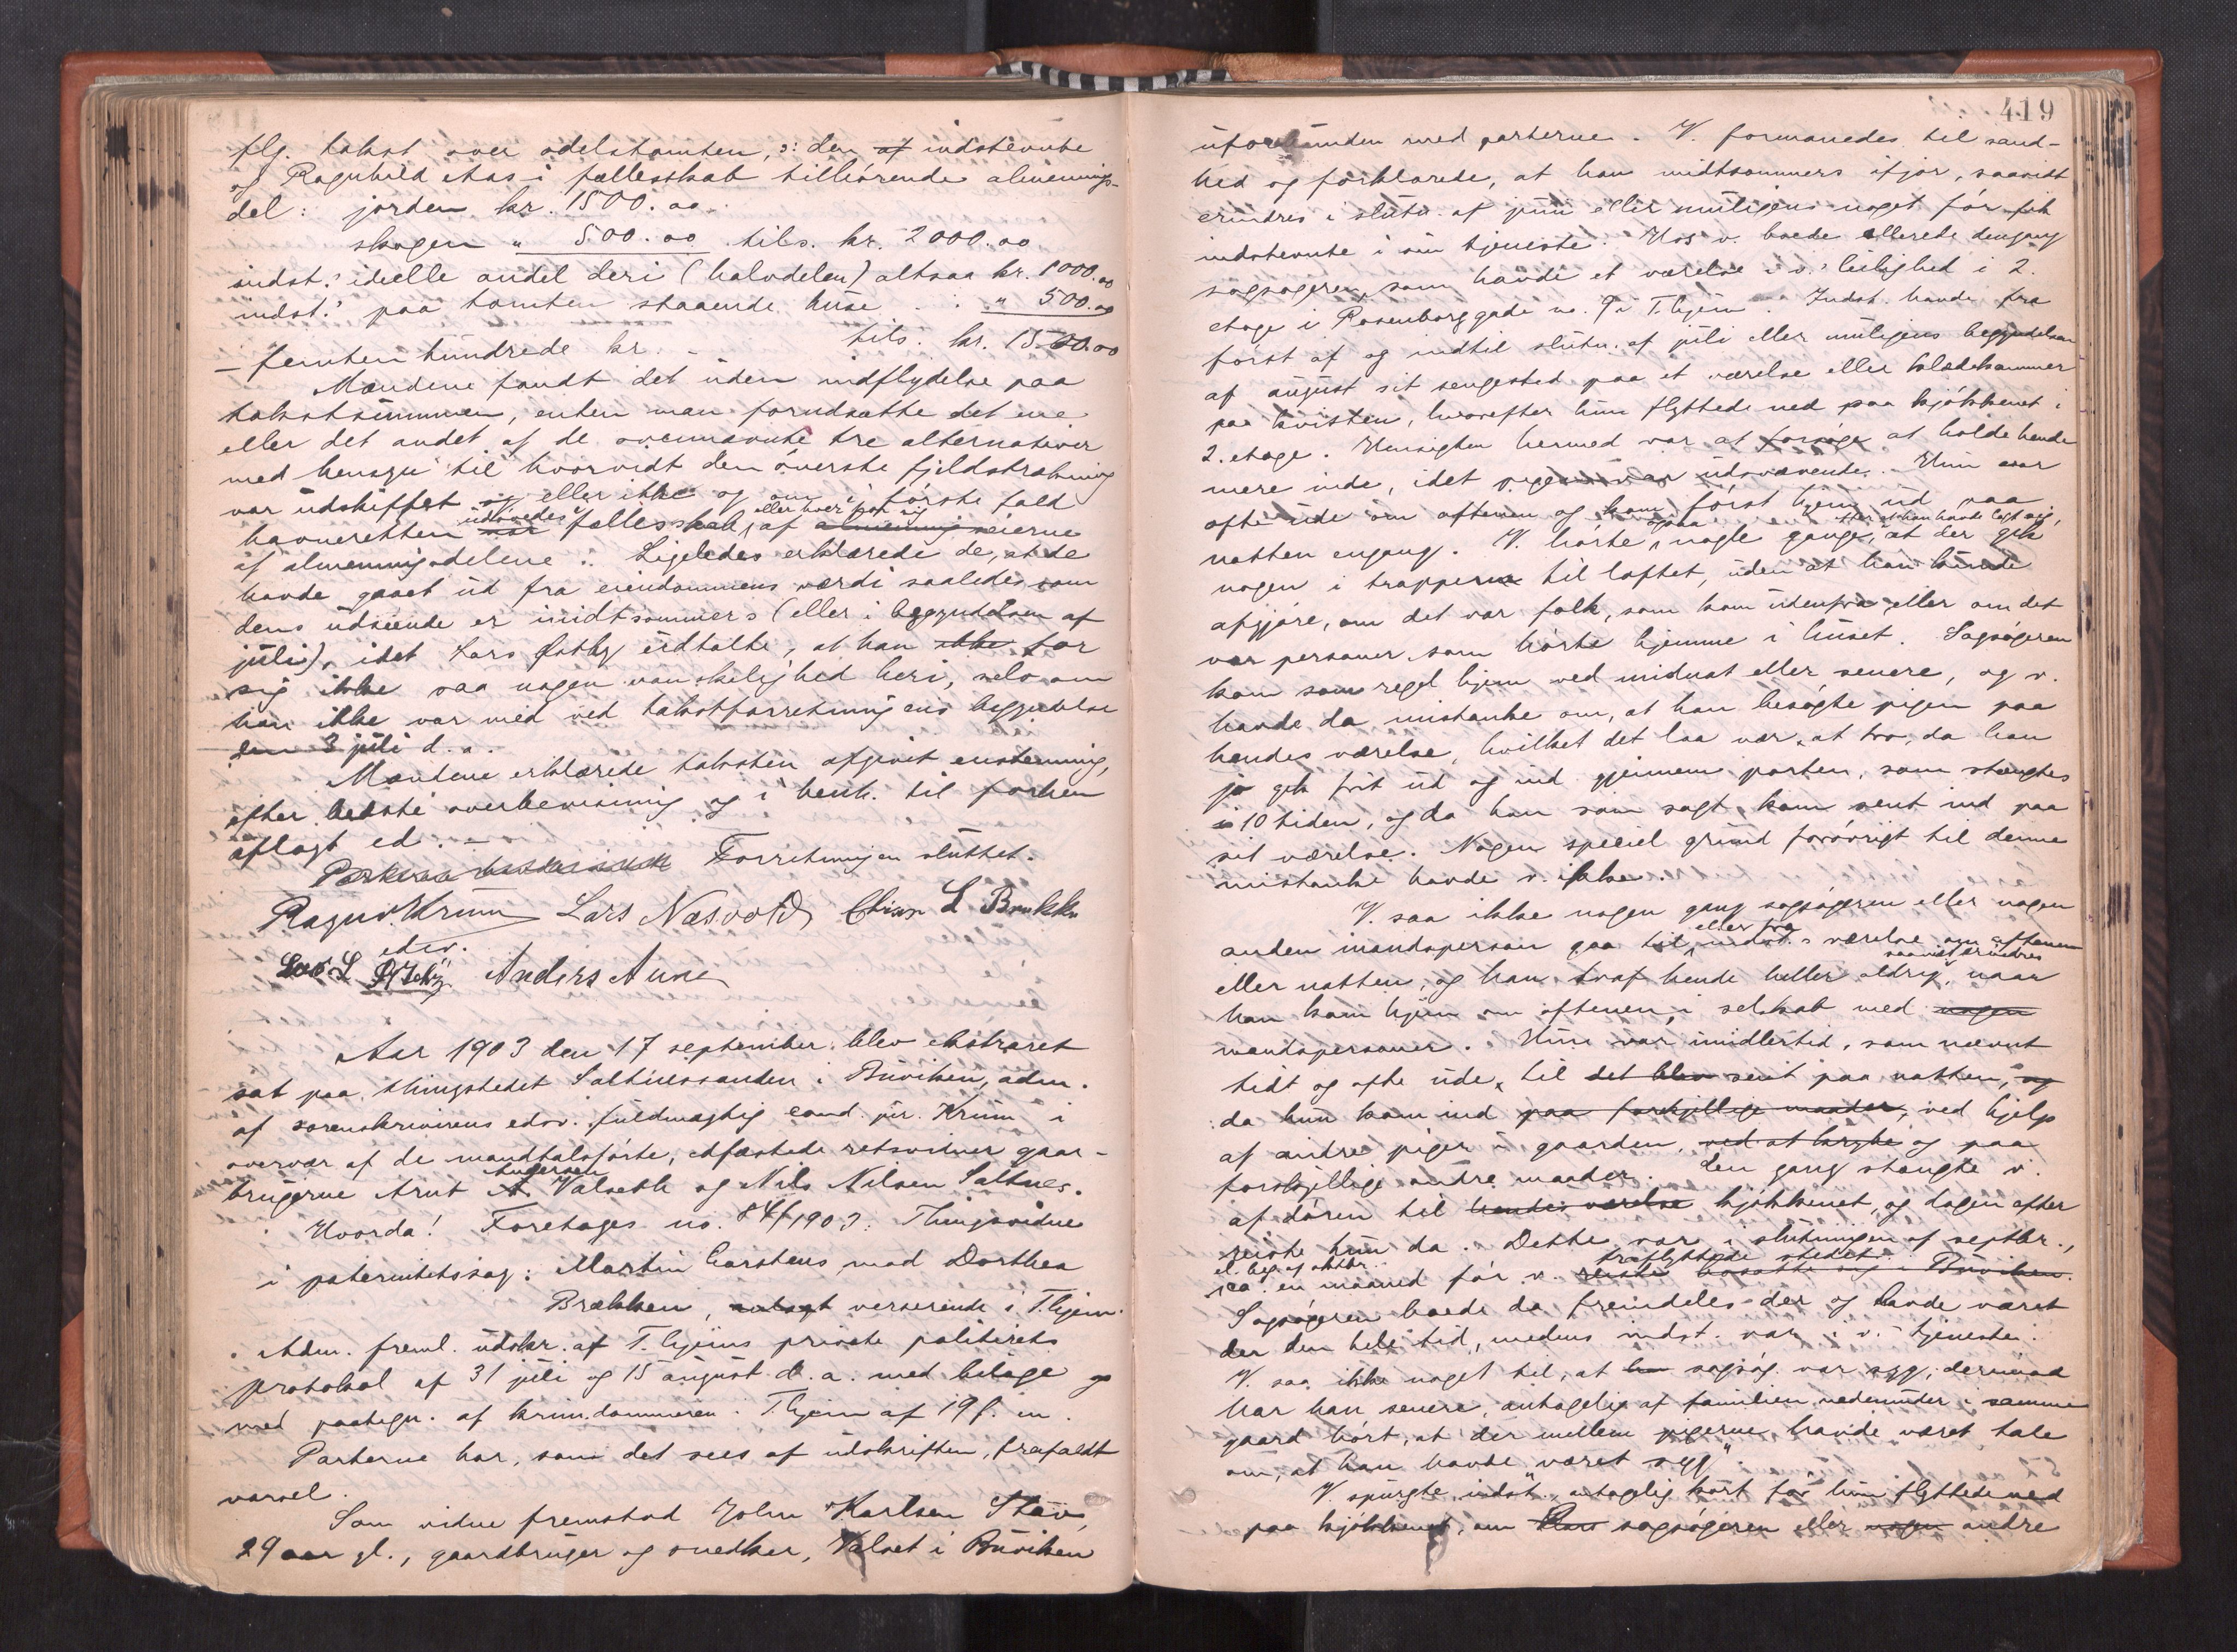 flg. takst over odelstomten, ɔ: den af indstevnte
og Ragnhild Aas i fællesskab tilhørende almennings-
del: jorden kr. 1500.00
skogen " 500.00 tils. kr. 2000.00
indst.s ideelle andel deri (halvdelen) altsaa kr. 1000.00
indst.s paa tomten staaende huse . . " 500.00
tils. kr. 1500.00
– femten hundrede kr. –
Mændene fandt det uden indflydelse paa
takstsummen, enten man forudsatte det ene
eller det andet af de ovennævnte tre alternativer
med hensyn til hvorvidt den øverste fjeldstrækning
var udskiftet og eller ikke og om i første fald
havneretten var udøvedes fællesskab, eller hver for sig af almenningseierne
af almenningsdelene. Ligeledes erklærede de, at de
havde gaaet ud fra eiendommens værdi saaledes som
dens udseende er midtsommers (eller i begyndelsen af
juli), idet Lars Østby udtalte, at han ikke for
sig ikke saa nogen vanskelighed heri, selv om
han ikke var med ved takstforretningens begyndelse
den 3 juli d. a.
Mændene erklærede taksten afgivet enstemmig,
efter bedste overbevisning og i henh. til forhen
aflagt ed. –
Forretningen sluttet.
Ragnv. Krum Lars Næsvold Chisn L Brekke
edsv.
Lars L Østby Anders Aune
Aar 1903 den 17 september blev ekstraret
sat paa thingstedet Saltnessanden i Buviken, adm.
af sorenskriverens edsv. fuldmægtig cand. jur. Krum i
overvær af de mandtalsførte, edfæstede retsvidner gaar-
brugerne Arnt A. Andersen Valseth og Nils Nilsen Saltnes.
Hvorda! Foretages no. 84/1903: Thingsvidne
i paternitetssag: Martin Carstens mod Dorthea
Brækken, anlagt verserende i T.hjem.
Adm. freml. udskr. af T.hjems private politirets
protokol af 31 juli og 15 august d. a. med bilage og
med paategn. af krim.dommeren i T.hjem af 19 f. m.
Parterne har, som det sees af udskriften, frafaldt
varsel.
Som vidne fremstod John Karlsen Stav,
29 aar gl., gaardbruger og snedker, Valset i Buviken
419
uforbunden med parterne. V. formanedes til sand-
hed og forklarede, at han midtsommers ifjor, saavidt
erindres i slutn. af juni eller muligens noget før fik
indstevnte i sin tjeneste. Hos v. boede allerede dengang
sagsøgeren, som havde et værelse i v.s leilighed i 2.
etage i Rosenborggade no. 9 i T.hjem. Indst. havde fra
først af og indtil slutn. af juli eller muligens begyndelsen
af august sit sengested paa et værelse eller klædekammer
paa kvisten, hvorefter hun flyttede ned paa kjøkkenet i
2. etage. Hensigten hermed var at forsøge at holde hende
mere inde, idet pigen var udsvævende. Hun var
ofte ude om aftenen og kom først hjem ud paa
natten engang. V. hørte ogsaa nogle gange, efter at han havde lagt sig, at der gik
nogen i trapperne til loftet, uden at han kunde
afgjøre, om det var folk, som kom udenfra eller om det
var personer som hørte hjemme i huset. Sagsøgeren
kom som regel hjem ved midnat eller senere, og v.
havde da mistanke om, at han besøgte pigen paa
hendes værelse, hvilket det laa nær at tro, da han
jo gik frit ud og ind gjennem porten, som stængtes
i 10 tiden, og da han som sagt kom sent ind paa
sit værelse. Nogen speciel grund forøvrigt til denne
mistanke havde v. ikke.
V. saa ikke nogen gang sagsøgeren eller nogen
anden mandsperson gaa til eller fra indst.s værelse om aftenen
eller natten, og han traf hende heller aldrig, saavidt erindres naar
han kom hjem om aftenen, i selskab med nogen
mandspersoner. Hun var imidlertid, som nævnt
tidt og ofte ude, til det blev sent paa natten, og
da hun kom ind paa forskjellige maader, ved hjelp
af andre piger i gaarden, ved at krybe og paa
forskjellige andre maader. Den gang stængte v.
af døren til hendes værelse kjøkkenet, og dagen efter
reiste hun da. Dette var i slutningen af septbr.,
el. beg. af oktbr. ca. en maaned før v. reiste bosatte sig i Buviken fraflyttede stedet.
Sagsøgeren boede da fremdeles der og havde været
der den hele tid, medens indst. var i v.s tjeneste.
V. saa ikke noget til, at han sagsøg. var syg; derimod
har han senere, antagelig af familien nedenunder i samme
gaard hørt, at der mellem pigerne havde været tale
om, at han havde været "syg".
V. spurgte indst. antagelig kort før hun flyttede ned
paa kjøkkenet, om sagsøgeren eller nogen andre